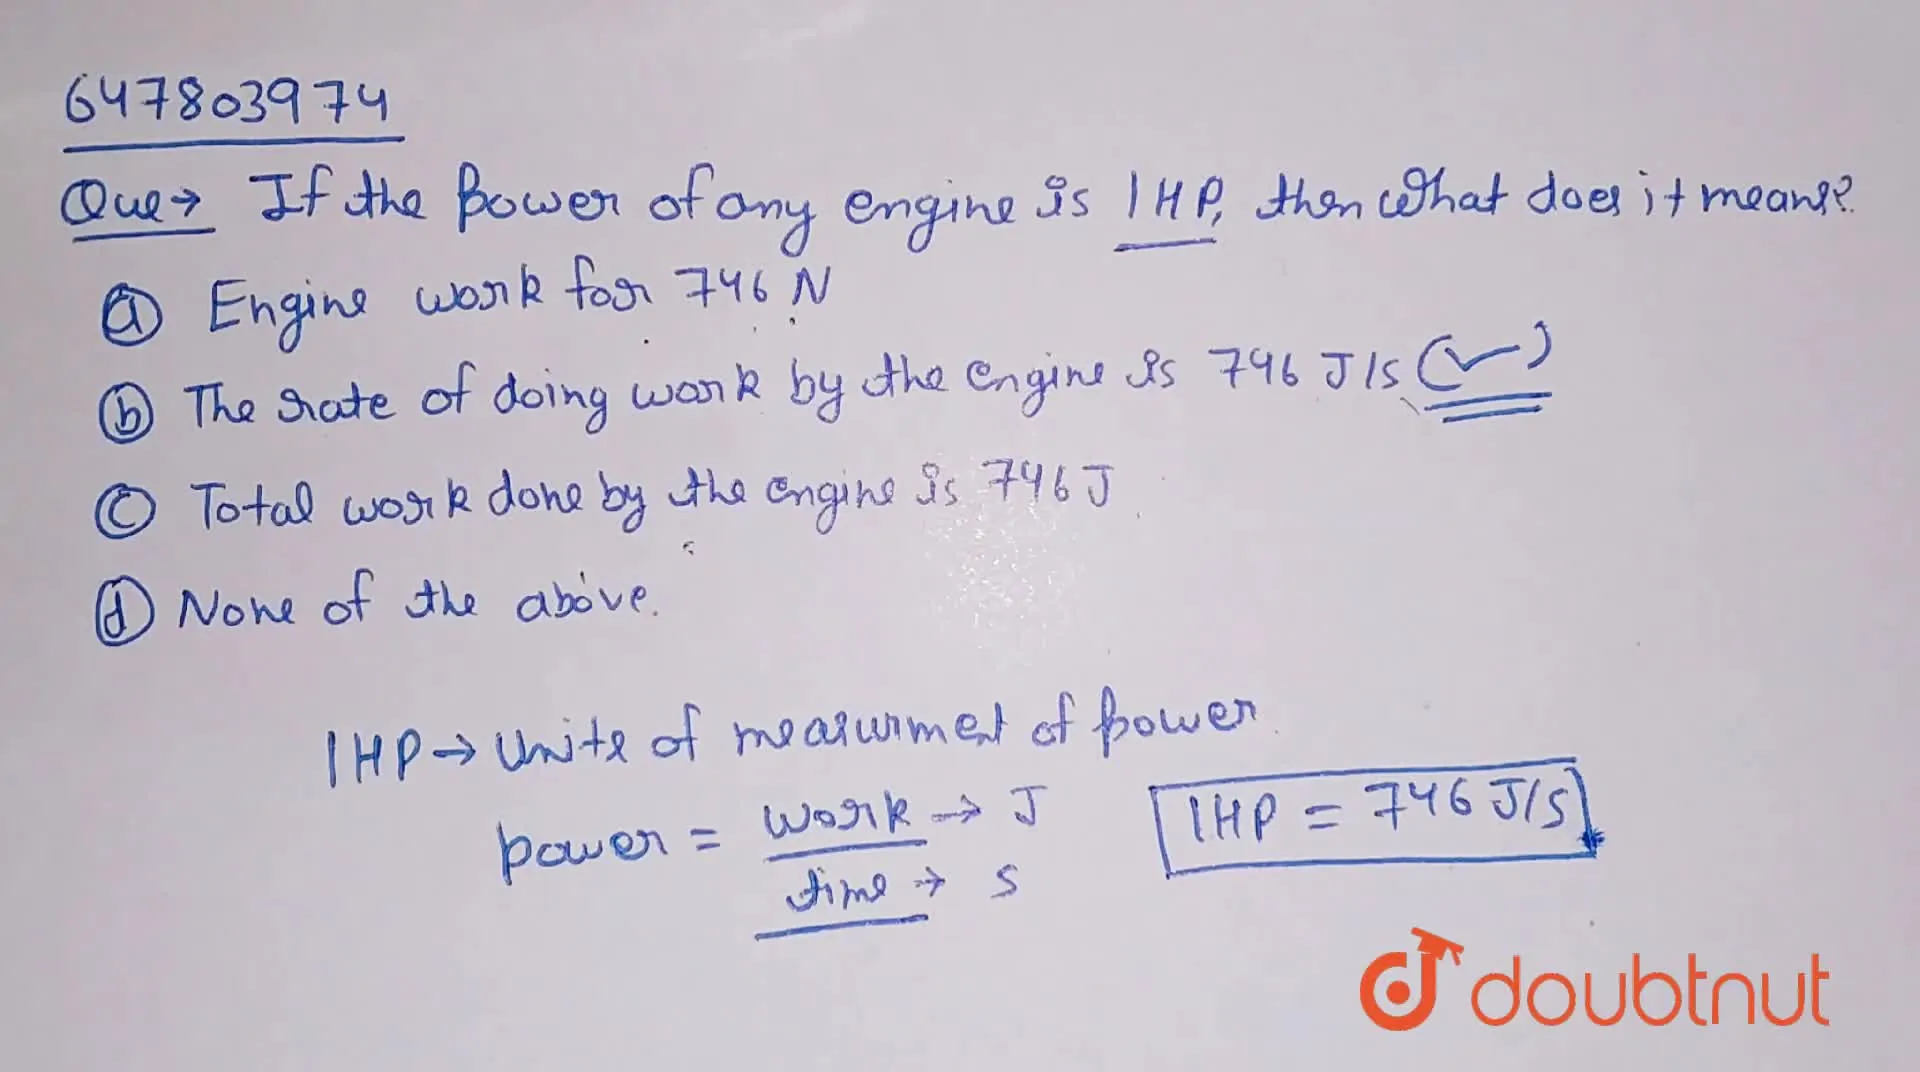 647803974
Que→ If the Power of any engine is 1HP, then what does it means?
ⓐ Engine work for 746 N
ⓑ The rate of doing work by the engine is 746 J/s (✓)
ⓒ Total work done by the engine is 746 J
ⓓ None of the above.
1HP → Unite of measurment of power.
power = work → J
time → s
1HP = 746 J/s
doubtnut